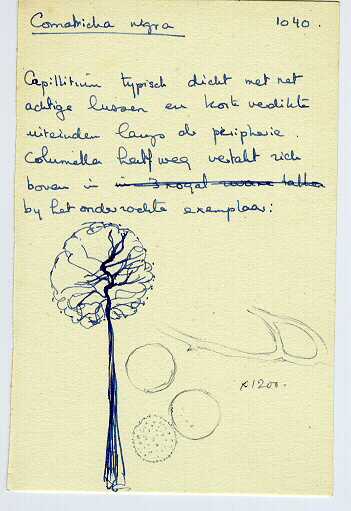 Comatricha nigra 1040.
Capillitium typisch dicht met net
achtige lussen en korte verdikte
uiteinden langs de peripherie.
Columella halfweg vertakt zich
boven in in 3 nogal zware takken
by het onderzochte exemplaar:
x1200.